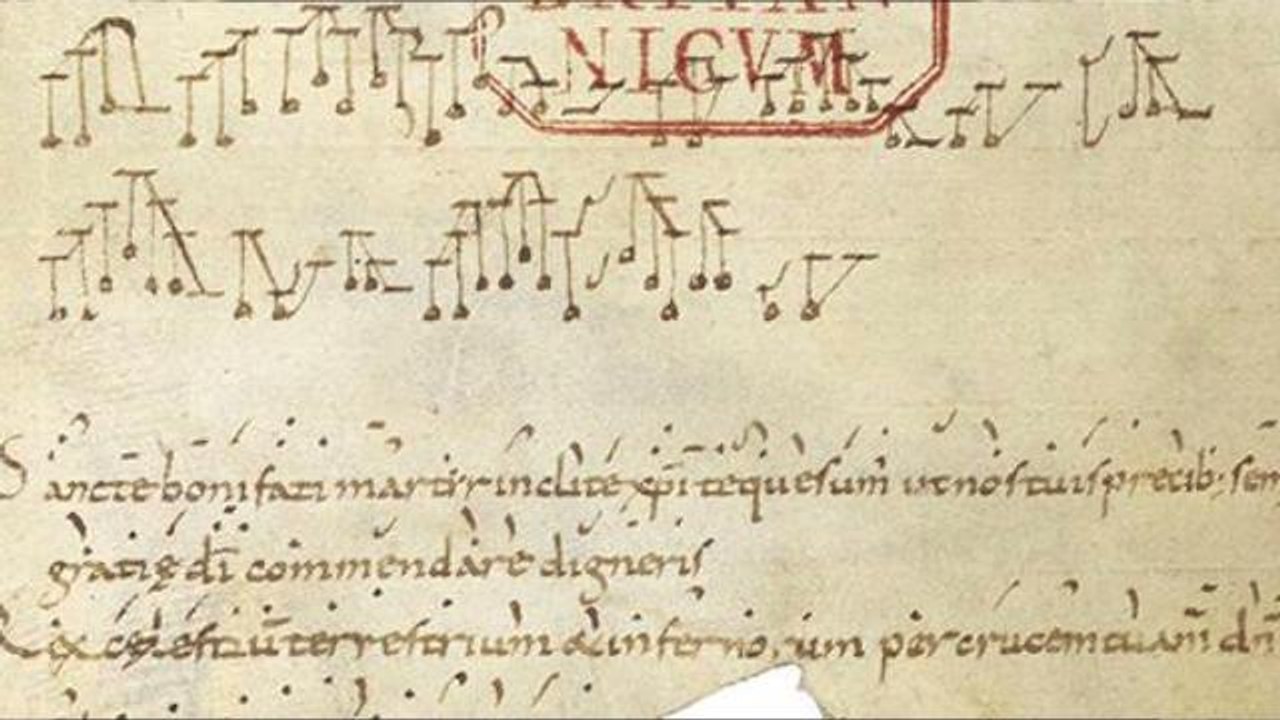 NICVM
Sancte bonifati martir inclite xp̄i te quesum̄ ut nos tuis precib; sem
gratię dī commendare digneris
Rex cęlestiū terrestrium & infernorum per crucem tuam dn̄